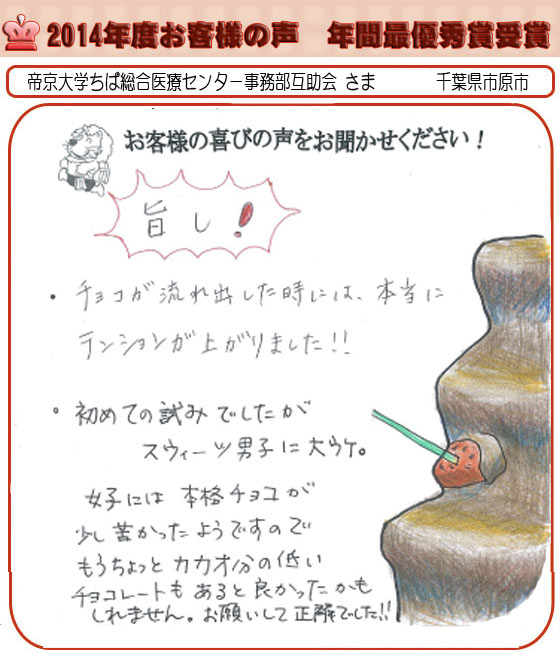 2014年度お客様の声　年間最優秀賞受賞
帝京大学ちば総合医療センター事務部互助会 さま　千葉県市原市
お客様の喜びの声をお聞かせください！
旨し！
・チョコが流れ出した時には、本当に
テンションが上がりました!!
・初めての試みでしたが
スウィーツ男子に大ウケ。
女子には本格チョコが
少し苦かったようですので
もうちょっとカカオ分の低い
チョコレートもあると良かったかも
しれません。お願いして正解でした!!